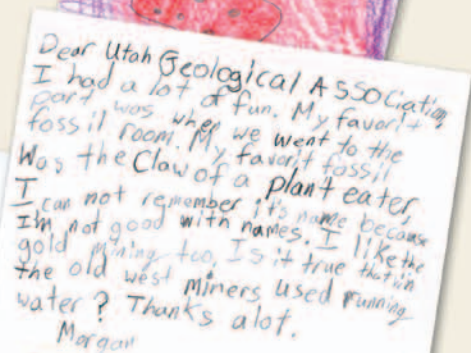 Dear Utah Geological Association,
I had a lot of fun. My favorit
part was when we went to the
fossil room. My favorit fossil
Was the Claw of a plant eater,
I can not remember it's name because
I'm not good with names. I like the
gold mining too. Is it true that in
the old west miners used running
water? Thanks alot.
Morgan